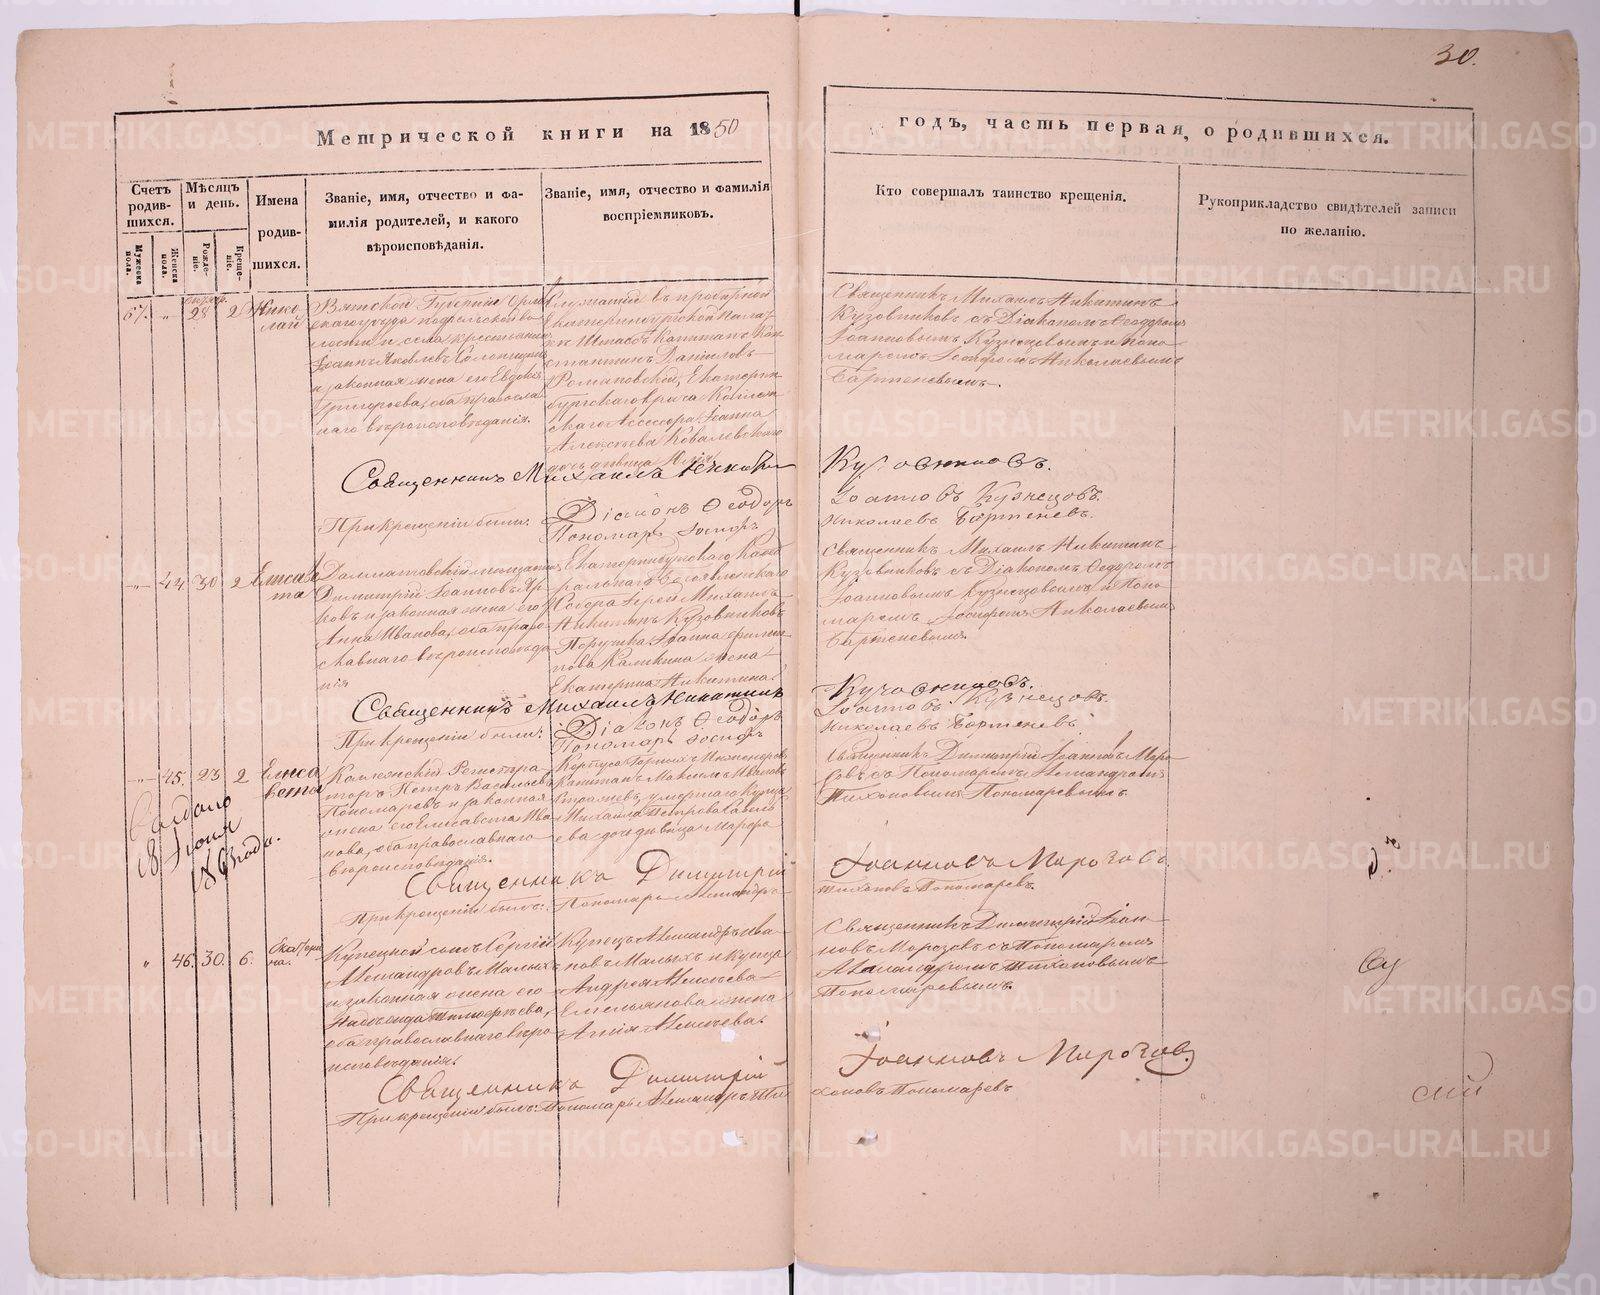 30.
Метрической книги на 1850
годъ, часть первая, о родившихся.
Счетъ родив- шихся.
Мѣсяцъ и день.
Имена родив- шихся.
Званіе, имя, отчество и фа-
милія родителей, и какого
вѣроисповѣданія.
Званіе, имя, отчество и фамилія
воспріемниковъ.
Кто совершалъ таинство крещенія.
Рукоприкладство свидѣтелей записи
по желанію.
Мужеска пола.
Женска пола.
Рожде- ніе.
Креще- ніе.
67. „ 28 2 Нико-
лай
Вятской Губерніи Орло
волости и села крестьянинъ
Іоаннъ Яковлевъ
и законная жена его Евдокія
Григорьева, оба правосла
наго вѣроисповѣданія.
Екатеринбургской Пала
Штабсъ Капитанъ Кон
стантинъ Даніиловъ
Романовскій, Екатерин
бургскаго врача Коллеж
скаго Ассесора Іоанна
Алексѣева Ковалевскаго
дочь дѣвица
Священникъ Михаилъ Никитинъ
Кузовниковъ съ Діакономъ Ѳеодоромъ
Іоанновымъ Кузнецовымъ и Поно
маремъ Іосифомъ Николаевымъ
Бартеневымъ.
Священникъ Михаилъ Никитин
Кузовниковъ.
При крещеніи были:
Діаконъ Ѳеодоръ
Іоанновъ Кузнецовъ.
Пономарь Іосифъ
Николаевъ Бартеневъ.
„ 44. 30 2 Елисаве
та
Далматовскій мѣщанинъ
Димитрій Іоанновъ
ковъ и законная жена его
Анна Иванова, оба право
славнаго вѣроисповѣда
нія
Екатеринбургскаго Каѳед
ральнаго Богоявленскаго
Собора Іерей Михаилъ
Никитинъ Кузовниковъ
Поручика Іоанна Филип
пова Каликина жена
Екатерина Никитина.
Священникъ Михаилъ Никитинъ
Кузовниковъ съ Діакономъ Ѳеодоромъ
Іоанновымъ Кузнецовымъ и Поно
маремъ Іосифомъ Николаевымъ
Бартеневымъ.
Священникъ Михаилъ Никитинъ
Кузовниковъ.
При крещеніи были:
Діаконъ Ѳеодоръ
Іоанновъ Кузнецовъ.
Пономарь Іосифъ
Николаевъ Бартеневъ.
„ 45. 23 2 Елиса
вета
Выдано
18 Іюня
года.
Коллежскій Регистра
торъ Петръ Васильевъ
Пономаревъ и законная
жена его Елисавета Ива
нова, оба православнаго
вѣроисповѣданія.
Корпуса Горныхъ Инженеровъ
Капитанъ Максимъ Ивановъ
умершаго Купца
Михаила Петрова
ева дочь дѣвица Марѳа
Священникъ Димитрій Іоанновъ Моро
зовъ съ Пономаремъ Александромъ
Тихоновымъ Пономаревымъ.
Священникъ Димитрій
Іоанновъ Морозовъ.
При крещеніи былъ: Пономарь Александръ
Тихоновъ Пономаревъ.
„ 46. 30. 6. Екатери
на.
Купецкой сынъ Сергій
Александровъ Малыхъ
и законная жена его
Надежда Тимоѳѣева,
оба православнаго вѣро
исповѣданія.
Купецъ Александръ Ива
новъ Малыхъ и Купца
Андрея Алексѣева
Емельянова жена
Алексѣева.
Священникъ Димитрій Іоан
новъ Морозовъ съ Пономаремъ
Александромъ Тихоновымъ
Пономаревымъ.
Священникъ Димитрій
Іоанновъ Морозовъ
При крещеніи былъ: Пономарь Александръ Ти
хоновъ Пономаревъ
METRIKI.GASO-URAL.RU